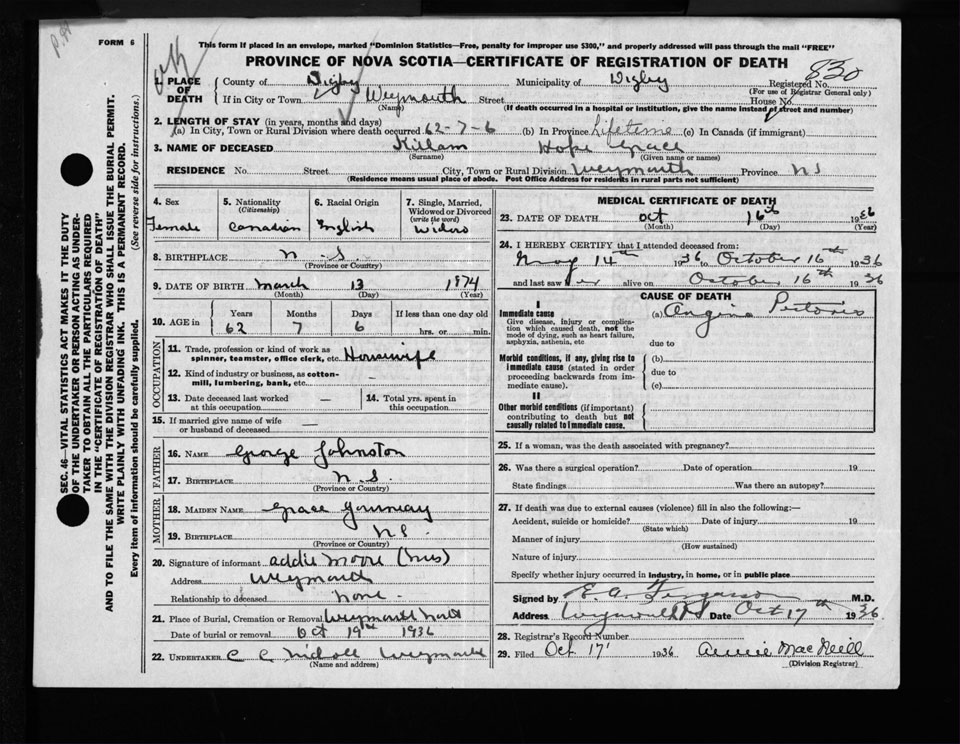 FORM 6
This form if placed in an envelope, marked "Dominion Statistics—Free, penalty for improper use $300," and properly addressed will pass through the mail "FREE"
PROVINCE OF NOVA SCOTIA—CERTIFICATE OF REGISTRATION OF DEATH
830
1. PLACE OF DEATH
County of Digby Municipality of Digby Registered No.
(For use of Registrar General only)
If in City or Town Weymouth Street House No.
(Name) (If death occurred in a hospital or institution, give the name instead of street and number)
2. LENGTH OF STAY (in years, months and days)
(a) In City, Town or Rural Division where death occurred 62-7-6 (b) In Province Lifetime (c) In Canada (if immigrant)
3. NAME OF DECEASED Killam Hope Grace
(Surname) (Given name or names)
RESIDENCE No. Street City, Town or Rural Division Weymouth Province NS
(Residence means usual place of abode. Post Office Address for residents in rural parts not sufficient)
4. Sex 5. Nationality (Citizenship) 6. Racial Origin 7. Single, Married, Widowed or Divorced (write the word)
Female Canadian English Widow
8. BIRTHPLACE N.S.
(Province or Country)
9. DATE OF BIRTH March 13 1874
(Month) (Day) (Year)
10. AGE in Years Months Days If less than one day old
62 7 6 hrs. or min.
OCCUPATION
11. Trade, profession or kind of work as spinner, teamster, office clerk, etc. Housewife
12. Kind of industry or business, as cotton-mill, lumbering, bank, etc. —
13. Date deceased last worked at this occupation — 14. Total yrs. spent in this occupation
15. If married give name of wife or husband of deceased —
FATHER
16. NAME George Johnston
17. BIRTHPLACE N.S.
(Province or Country)
MOTHER
18. MAIDEN NAME Grace
19. BIRTHPLACE NS.
(Province or Country)
20. Signature of informant Addie Moore (Mrs)
Address Weymouth
Relationship to deceased None
21. Place of Burial, Cremation or Removal Weymouth North
Date of burial or removal Oct 19th 1936
22. UNDERTAKER C C Nicholl Weymouth
(Name and address)
MEDICAL CERTIFICATE OF DEATH
23. DATE OF DEATH Oct 16th 1936
(Month) (Day) (Year)
24. I HEREBY CERTIFY that I attended deceased from:
May 14th 1936 to October 16th 1936
and last saw her alive on October 16th 1936
CAUSE OF DEATH
I
Immediate cause (a) Angina Pectoris
Give disease, injury or complication which caused death, not the mode of dying, such as heart failure, asphyxia, asthenia, etc
due to
Morbid conditions, if any, giving rise to immediate cause (stated in order proceeding backwards from immediate cause).
(b)
due to
(c)
II
Other morbid conditions (if important) contributing to death but not causally related to immediate cause.
25. If a woman, was the death associated with pregnancy?
26. Was there a surgical operation? Date of operation 19
State findings Was there an autopsy?
27. If death was due to external causes (violence) fill in also the following:—
Accident, suicide or homicide? Date of injury 19
(State which)
Manner of injury
(How sustained)
Nature of injury
Specify whether injury occurred in industry, in home, or in public place
Signed by E. A. Ferguson M.D.
Address Weymouth NS Date Oct 17th 1936
28. Registrar's Record Number
29. Filed Oct 17 1936 Annie MacNeill
(Division Registrar)
SEC. 46—VITAL STATISTICS ACT MAKES IT THE DUTY
OF THE UNDERTAKER OR PERSON ACTING AS UNDER-
TAKER TO OBTAIN ALL THE PARTICULARS REQUIRED
IN THE "CERTIFICATE OF REGISTRATION OF DEATH"
AND TO FILE THE SAME WITH THE DIVISION REGISTRAR WHO SHALL ISSUE THE BURIAL PERMIT.
WRITE PLAINLY WITH UNFADING INK. THIS IS A PERMANENT RECORD.
Every item of information should be carefully supplied. (See reverse side for instructions.)